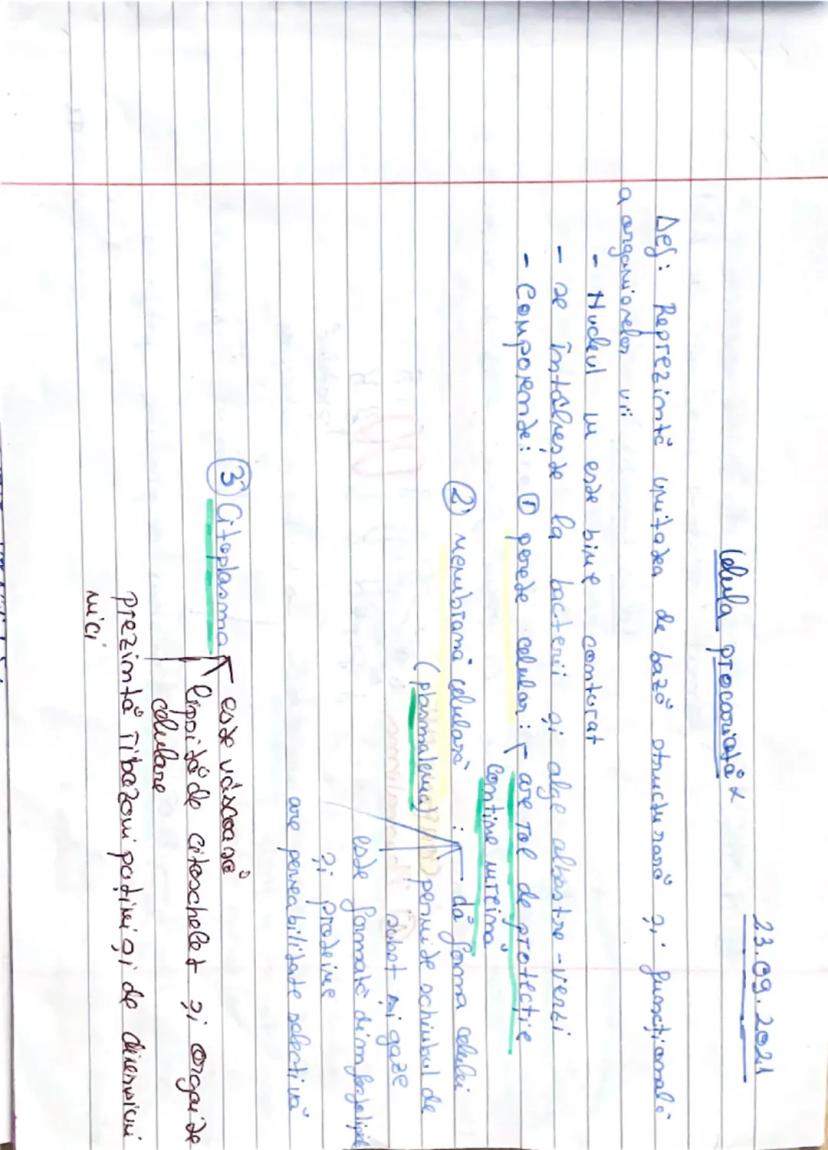 23.09.2021
Celula procariotă
Def: Reprezintă unitatea de bază structurală și funcțională
a organismelor vii
- Nucleul nu este bine conturat
- se întâlnește la bacterii și alge albastre-verzi
- Componente: ① perete celular: are rol de protecție
conține mureină
② membrană celulară: dă forma celulei
(plasmalema) permite schimbul de
subst și gaze
este formată din fosfolipide
și proteine
are permeabilitate selectivă
③ Citoplasma este vâscoasă
lipsită de citoschelet și organite
celulare
prezintă ribozomi puțini și de dimensiuni
mici